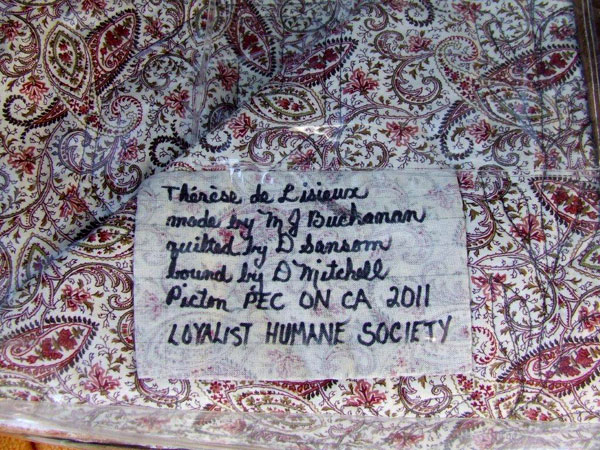 Thérèse de Lisieux
made by M J Buchanan
quilted by D Sansom
bound by D Mitchell
Picton PEC ON CA 2011
LOYALIST HUMANE SOCIETY